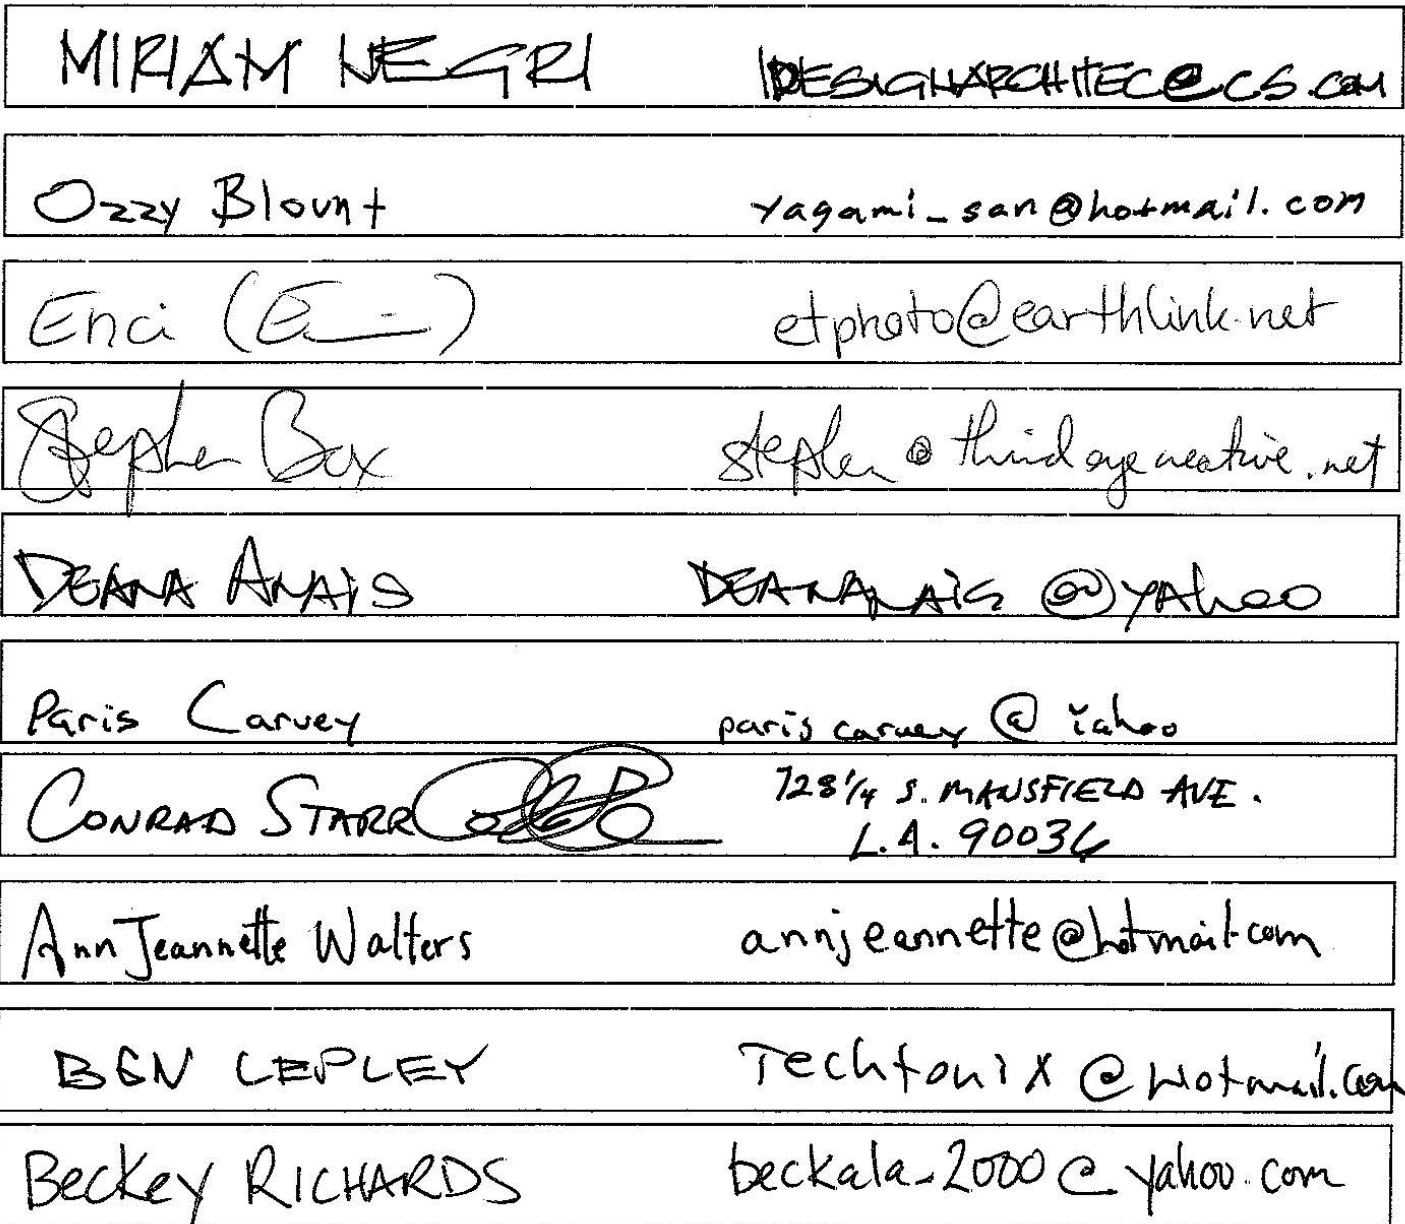 MIRIAM NEGRI IDESIGNARCHITEC@CS.COM
Ozzy Blount yagami_san@hotmail.com
Enci (E ) etphoto@earthlink.net
Stephen Box stephen@thirdeyecreative.net
DEANA ANAIS DEANANAIS @YAhoo
Paris Carvey paris carvey @ yahoo
CONRAD STARR 728 1/4 S. MANSFIELD AVE.
L.A. 90036
Ann Jeannette Walters annjeannette@hotmail.com
BEN LEPLEY Techtonix @ Hotmail.com
Beckey RICHARDS beckala_2000@yahoo.com